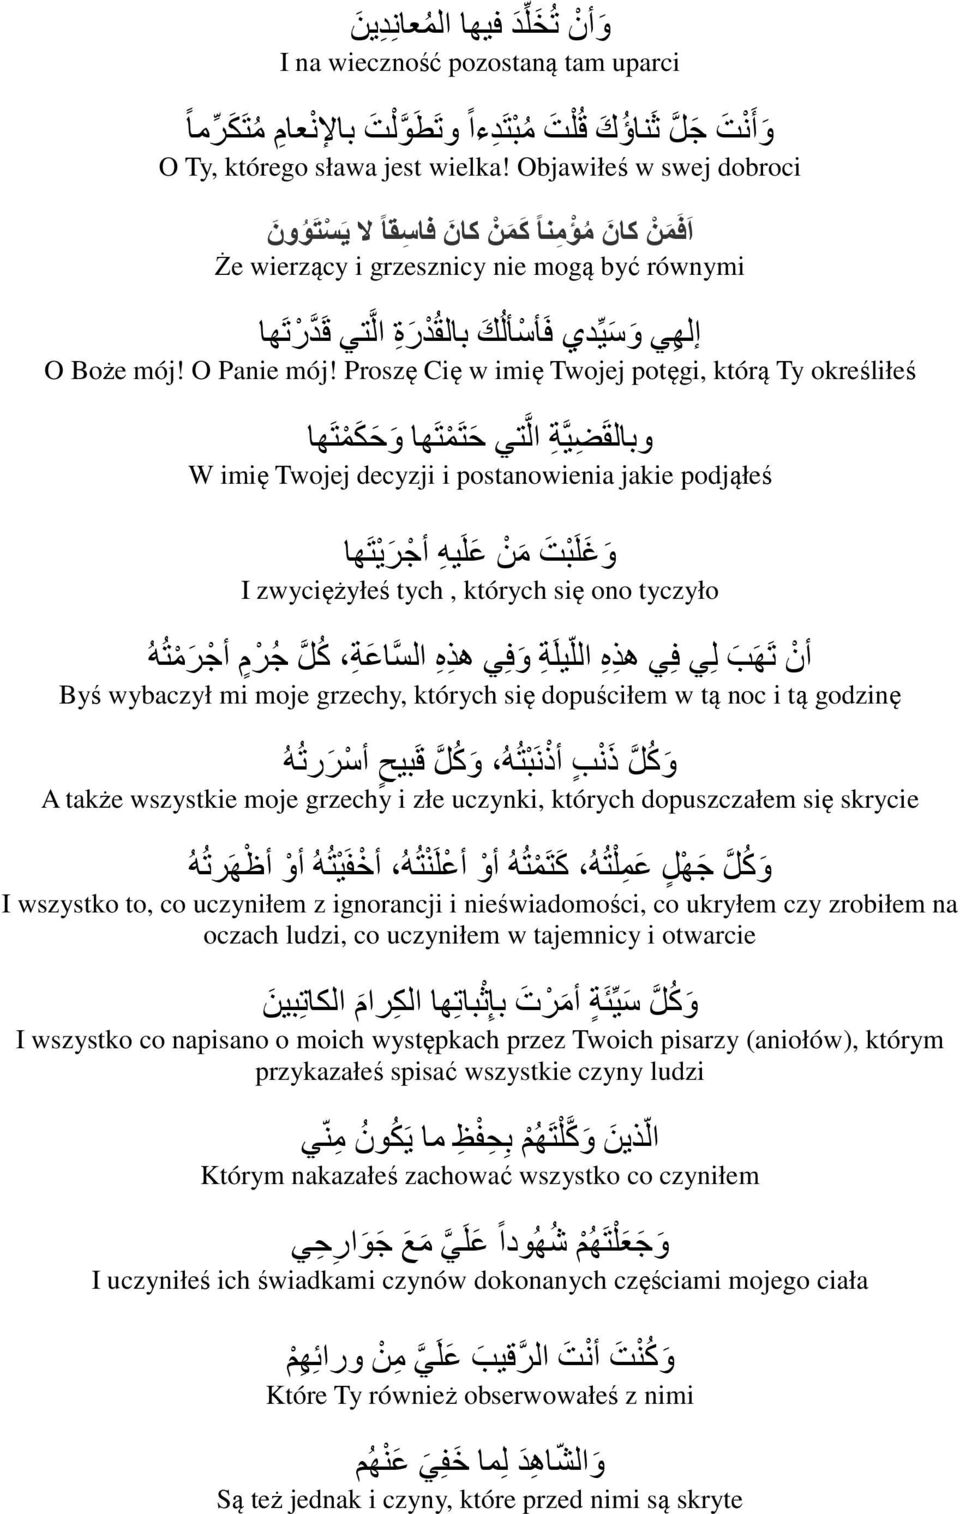 وَأنْ تُخَلِّدَ فيها المُعانِدِينَ
I na wieczność pozostaną tam uparci
وَأَنْتَ جَلَّ ثَناؤُكَ قُلْتَ مُبْتَدِءاً وتَطَوَّلْتَ بالإنْعامِ مُتَكَرِّماً
O Ty, którego sława jest wielka! Objawiłeś w swej dobroci
اَفَمَنْ كانَ مُؤْمِناً كَمَنْ كانَ فاسِقاً لا يَسْتَوُونَ
Że wierzący i grzesznicy nie mogą być równymi
إلهِي وَسَيِّدي فَأسْألُكَ بالقُدْرَةِ الَّتي قَدَّرْتَها
O Boże mój! O Panie mój! Proszę Cię w imię Twojej potęgi, którą Ty określiłeś
وبالقَضيَّةِ الَّتي حَتَمْتَها وَحَكَمْتَها
W imię Twojej decyzji i postanowienia jakie podjąłeś
وَغَلَبْتَ مَنْ عَلَيهِ أجْرَيْتَها
I zwyciężyłeś tych , których się ono tyczyło
أنْ تَهَبَ لِي فِي هذِهِ اللّيلَةِ وَفِي هذِهِ السَّاعَةِ، كُلَّ جُرْمٍ أجْرَمْتُهُ
Byś wybaczył mi moje grzechy, których się dopuściłem w tą noc i tą godzinę
وَكُلَّ ذَنْبٍ أذْنَبْتُهُ، وَكُلَّ قَبيحٍ أسْرَرتُهُ
A także wszystkie moje grzechy i złe uczynki, których dopuszczałem się skrycie
وَكُلَّ جَهْلٍ عَمِلْتُهُ، كَتَمْتُهُ أوْ أعْلَنْتُهُ، أخْفَيْتُهُ أوْ أظْهَرتُهُ
I wszystko to, co uczyniłem z ignorancji i nieświadomości, co ukryłem czy zrobiłem na
oczach ludzi, co uczyniłem w tajemnicy i otwarcie
وَكُلَّ سَيِّئَةٍ أمَرْتَ بإثْباتِها الكِرامَ الكاتِبينَ
I wszystko co napisano o moich występkach przez Twoich pisarzy (aniołów), którym
przykazałeś spisać wszystkie czyny ludzi
الّذينَ وَكَّلْتَهُمْ بِحِفْظِ ما يَكُونُ مِنّي
Którym nakazałeś zachować wszystko co czyniłem
وَجَعَلْتَهُمْ شُهُوداً عَلَيَّ مَعَ جَوَارِحِي
I uczyniłeś ich świadkami czynów dokonanych częściami mojego ciała
وَكُنْتَ أنْتَ الرَّقيبَ عَلَيَّ مِنْ ورائِهِمْ
Które Ty również obserwowałeś z nimi
وَالشّاهِدَ لِما خَفِيَ عَنْهُم
Są też jednak i czyny, które przed nimi są skryte